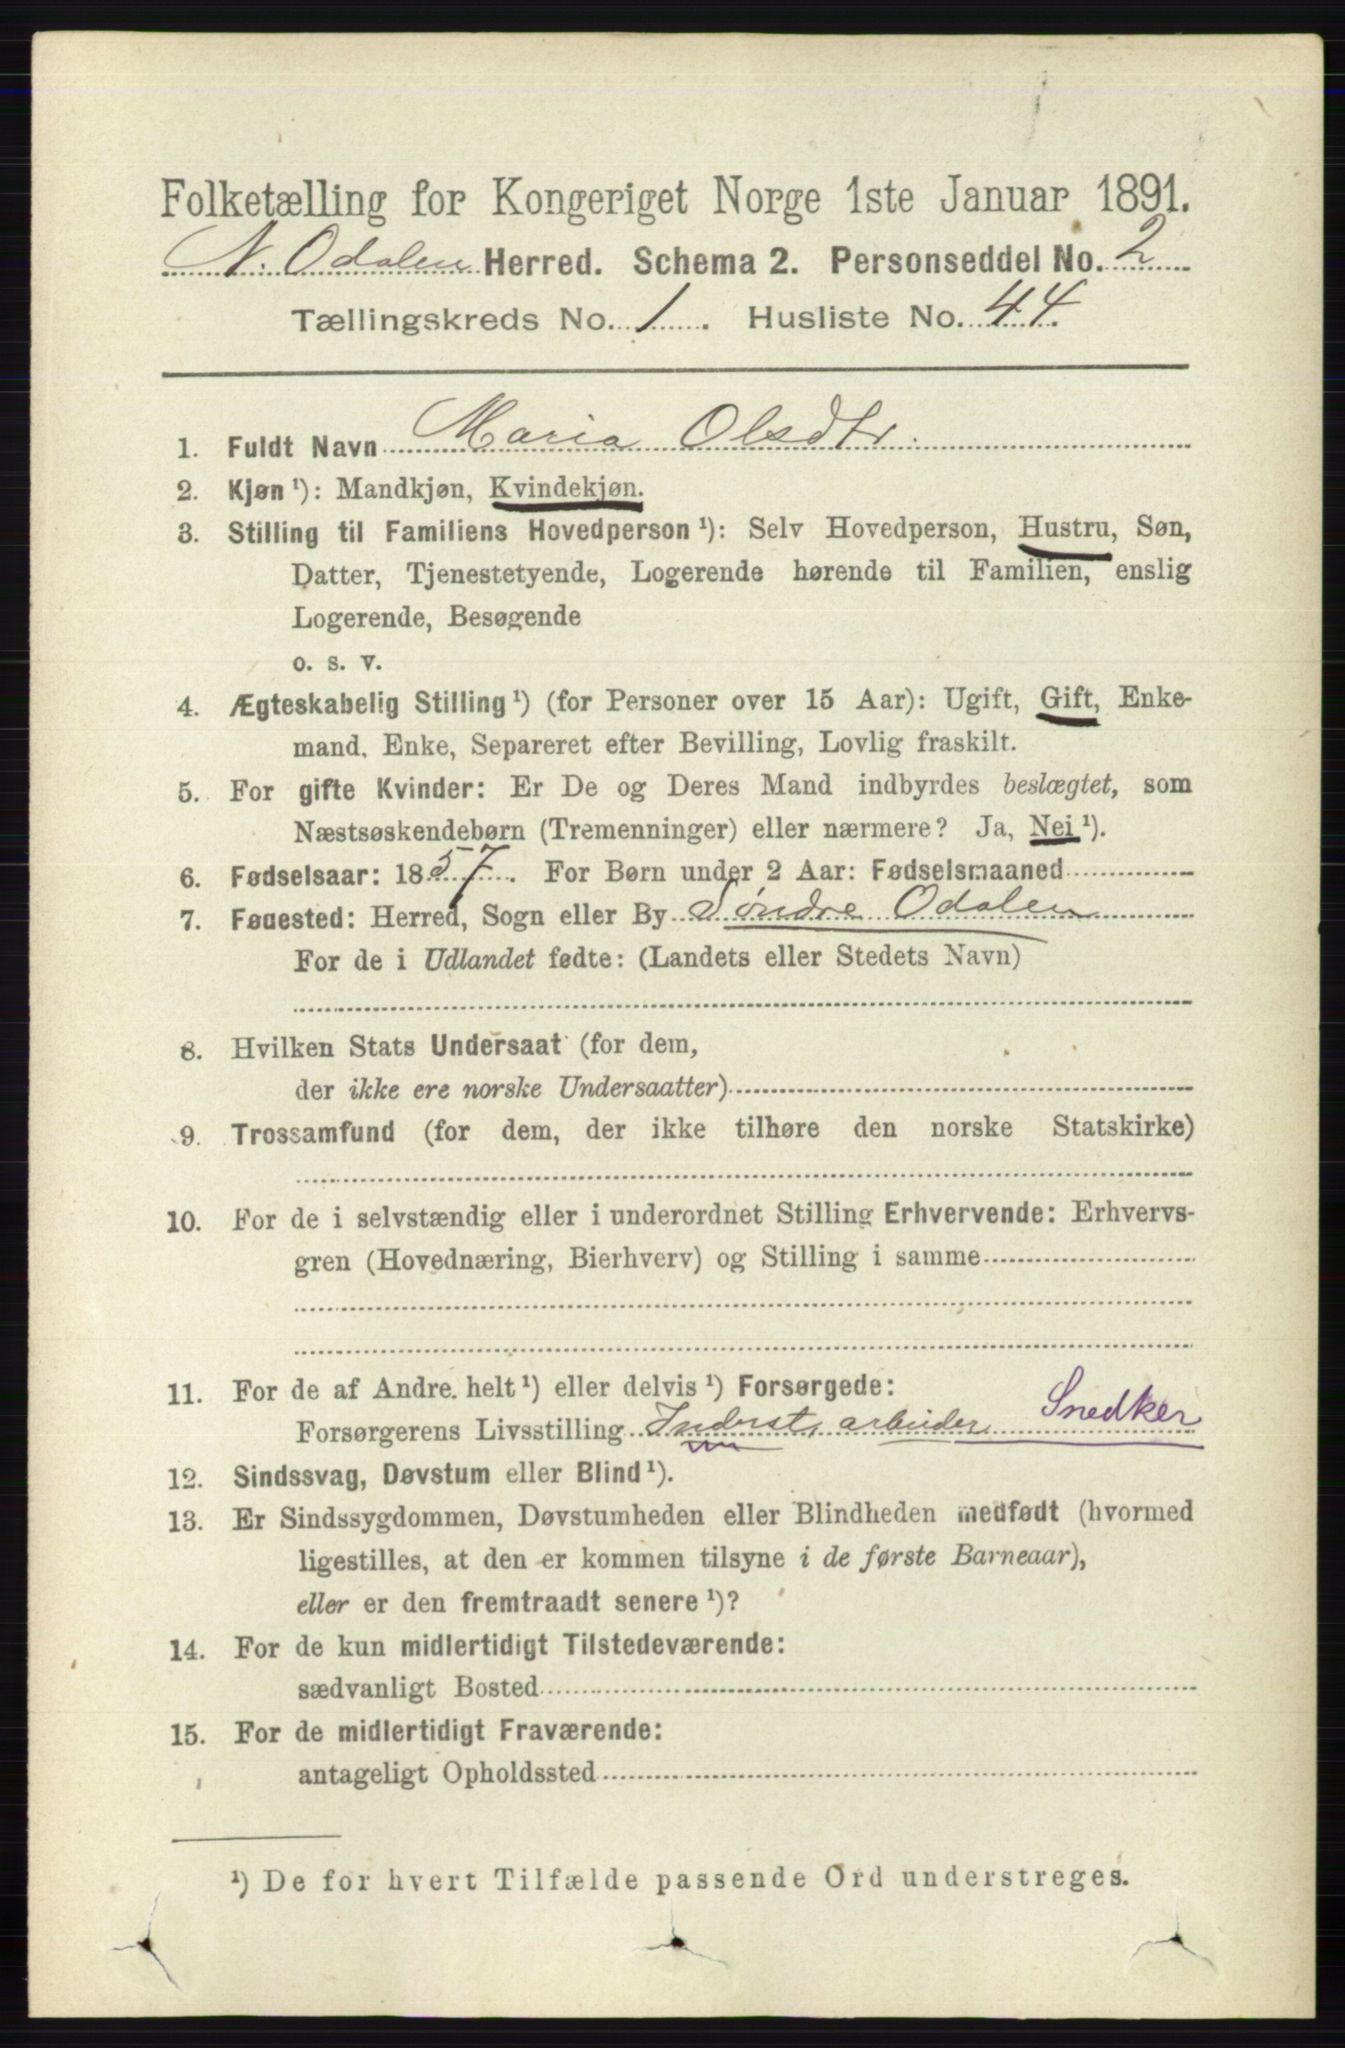 Folketælling for Kongeriget Norge 1ste Januar 1891.
N. Odalen Herred. Schema 2. Personseddel No. 2
Tællingskreds No. 1. Husliste No. 44.
1. Fuldt Navn Maria Olsdtr.
2. Kjøn ¹): Mandkjøn, Kvindekjøn.
3. Stilling til Familiens Hovedperson ¹): Selv Hovedperson, Hustru, Søn,
Datter, Tjenestetyende, Logerende hørende til Familien, enslig
Logerende, Besøgende
o. s. v.
4. Ægteskabelig Stilling ¹) (for Personer over 15 Aar): Ugift, Gift, Enke-
mand, Enke, Separeret efter Bevilling, Lovlig fraskilt.
5. For gifte Kvinder: Er De og Deres Mand indbyrdes beslægtet, som
Næstsøskendebørn (Tremenninger) eller nærmere? Ja, Nei ¹).
6. Fødselsaar: 1857. For Børn under 2 Aar: Fødselsmaaned
7. Fødested: Herred, Sogn eller By Søndre Odalen
For de i Udlandet fødte: (Landets eller Stedets Navn)
8. Hvilken Stats Undersaat (for dem,
der ikke ere norske Undersaatter)
9. Trossamfund (for dem, der ikke tilhøre den norske Statskirke)
10. For de i selvstændig eller i underordnet Stilling Erhvervende: Erhvervs-
gren (Hovednæring, Bierhverv) og Stilling i samme
11. For de af Andre helt ¹) eller delvis ¹) Forsørgede:
Forsørgerens Livsstilling Inderst, arbeider Snedker
12. Sindssvag, Døvstum eller Blind ¹).
13. Er Sindssygdommen, Døvstumheden eller Blindheden medfødt (hvormed
ligestilles, at den er kommen tilsyne i de første Barneaar),
eller er den fremtraadt senere ¹)?
14. For de kun midlertidigt Tilstedeværende:
sædvanligt Bosted
15. For de midlertidigt Fraværende:
antageligt Opholdssted
¹) De for hvert Tilfælde passende Ord understreges.